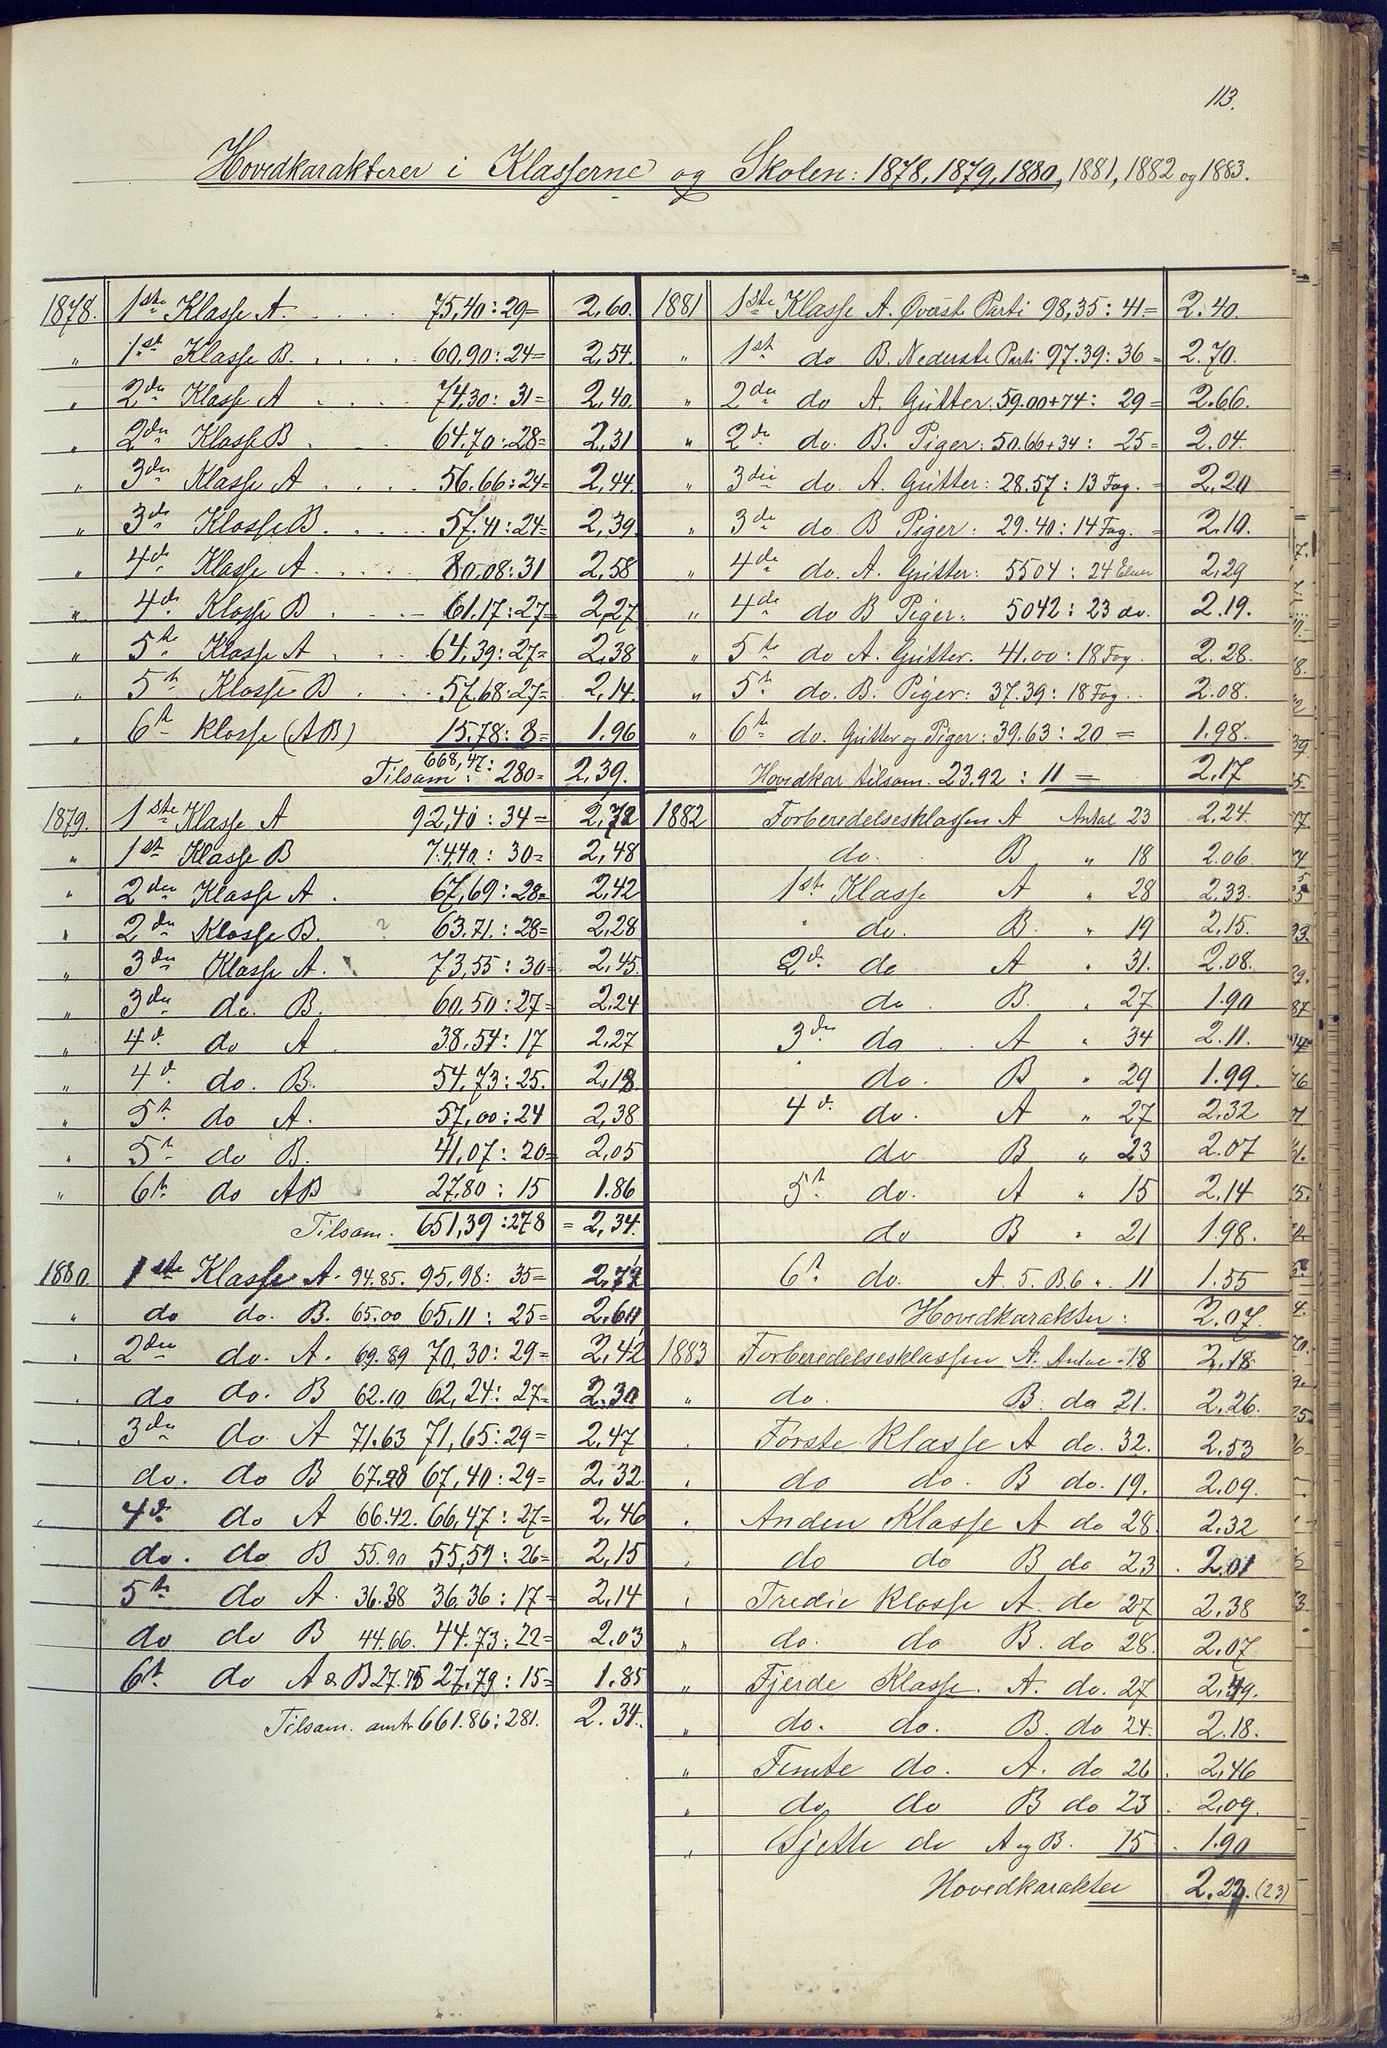 113.
Hovedkarakterer i Klasserne og Skolen: 1878, 1879, 1880, 1881, 1882 og 1883.
1878. 1ste Klasse A. . . . . 75,40 : 29= 2,60.
„ 1st Klasse B. . . . . 60,90 : 24= 2,54.
„ 2den Klasse A . . . . 74,30 : 31= 2,40.
„ 2den Klasse B . . . 64,70 : 28= 2,31
„ 3die Klasse A . . . . 56.66 : 24= 2,44.
„ 3de Klasse B. . . . 57.41 : 24= 2,39.
„ 4de Klasse A . . . . 80,08 : 31 2,58
„ 4de Klasse B . . . . 61,17 : 27= 2,27
„ 5te Klasse A . . . 64,39 : 27= 2,38
„ 5t Klasse B . . . . 57,68 : 27= 2,14.
„ 6t Klasse (AB) 15.78 : 8= 1.96
Tilsam: 668,47 : 280= 2,39.
1879. 1ste Klasse A 92,40 : 34= 2,72
„ 1st Klasse B 74.40. : 30= 2,48
„ 2den Klasse A . 67,69 : 28= 2,42
„ 2den Klasse B. ? 63.71. : 28= 2,28
„ 3den Klasse A. 73,55 : 30= 2,45.
„ 3den do. B. 60,50 : 27= 2,24
„ 4d. do A . 38,54 : 17 2,27
„ 4d. do. B. 54,73 : 25. 2,18
„ 5t do A. 57,00 : 24 2,38
„ 5t do B. 41,07 : 20= 2,05
„ 6t. do AB 27,80 : 15 1.86
Tilsam. 651,39 : 278 = 2,34.
1880. 1ste Klasse A. 94.85. 95,98 : 35= 2,77
„ do do. B. 65.00 65,11 : 25= 2,60
„ 2den do. A. 69.89 70.30 : 29= 2,42
„ do do. B 62.10 62,24 : 27= 2.30
„ 3den do. A 71.63 71,65 : 29= 2,47
do. do B 67.28 67,40 : 29= 2,32.
„ 4d. do A 66.42. 66,47 : 27= 2,46
do. do B 55.90 55,59 : 26= 2,15
5te do A. 36.38 36.36 : 17= 2,14
do do B 44.66. 44.73 : 22= 2.03
6t. do A & B 27.75 27,79 : 15= 1.85
Tilsam. 661.86 : 281. 2.34.
1881 1ste Klasse A. Øverste Parti 98,35 : 41= 2.40.
„ 1st do B. Nederste Parti 97.39 : 36= 2.70.
„ 2den do A. Gutter: 59.00+74 : 29= 2.66.
„ 2de do. B. Piger: 50.66+34 : 25= 2.04.
„ 3die do. A. Gutter: 28.57 : 13 Fag. = 2,20
„ 3de do. B Piger: 29.40 : 14 Fag. = 2.10.
„ 4de do. A. Gutter: 5504 : 24 Elever 2,29
„ 4de do B Piger: 5042 : 23 do. 2.19.
„ 5te do A. Gutter. 41.00 : 18 Fag. 2.28.
„ 5t do. B. Piger: 37.39 : 18 Fag. . 2.08.
„ 6t do. Gutter og Piger: 39.63 : 20 = 1.98.
Hovedkar tilsam. 23.92 : 11 = 2,17
1882 Forberedelsesklassen A Antal 23 2,24.
do. B „ 18 2.06.
1ste Klasse A „ 28 2,33.
do. B. „ 19 2,15.
2d. do A „ 31. 2.08.
do B. „ 27 1.90
3die do A „ 34 2.11.
do. B „ 29 1.99.
4d. do. A „ 27 2,32
do B „ 23 2.07
5t do. A „ 15 2,14
do B „ 21 1.98.
6t. do. A. 5. B 6 „ 11 1.55
Hovedkarakter: 2.07.
1883 Forberedelsesklassen A. Antal 18 2,18.
„ do. B. do 21. 2,26.
„ Første Klasse A do. 32. 2,53
„ do do. B do. 19. 2,09.
„ Anden Klasse A do 28. 2,32
„ do do B do 23 . 2,01
„ Tredie Klasse A. do 27 2,38
„ do. do B. do 28. 2,07
„ Fjerde Klasse. A. do. 27 2,49.
„ do. do. B. do 24. 2.18.
„ Femte do. A. do 26 . 2,46
„ do do B do 23 . 2,09.
„ Sjette do A og B. 15 . 1.90
Hovedkarakter 2.22. (23)